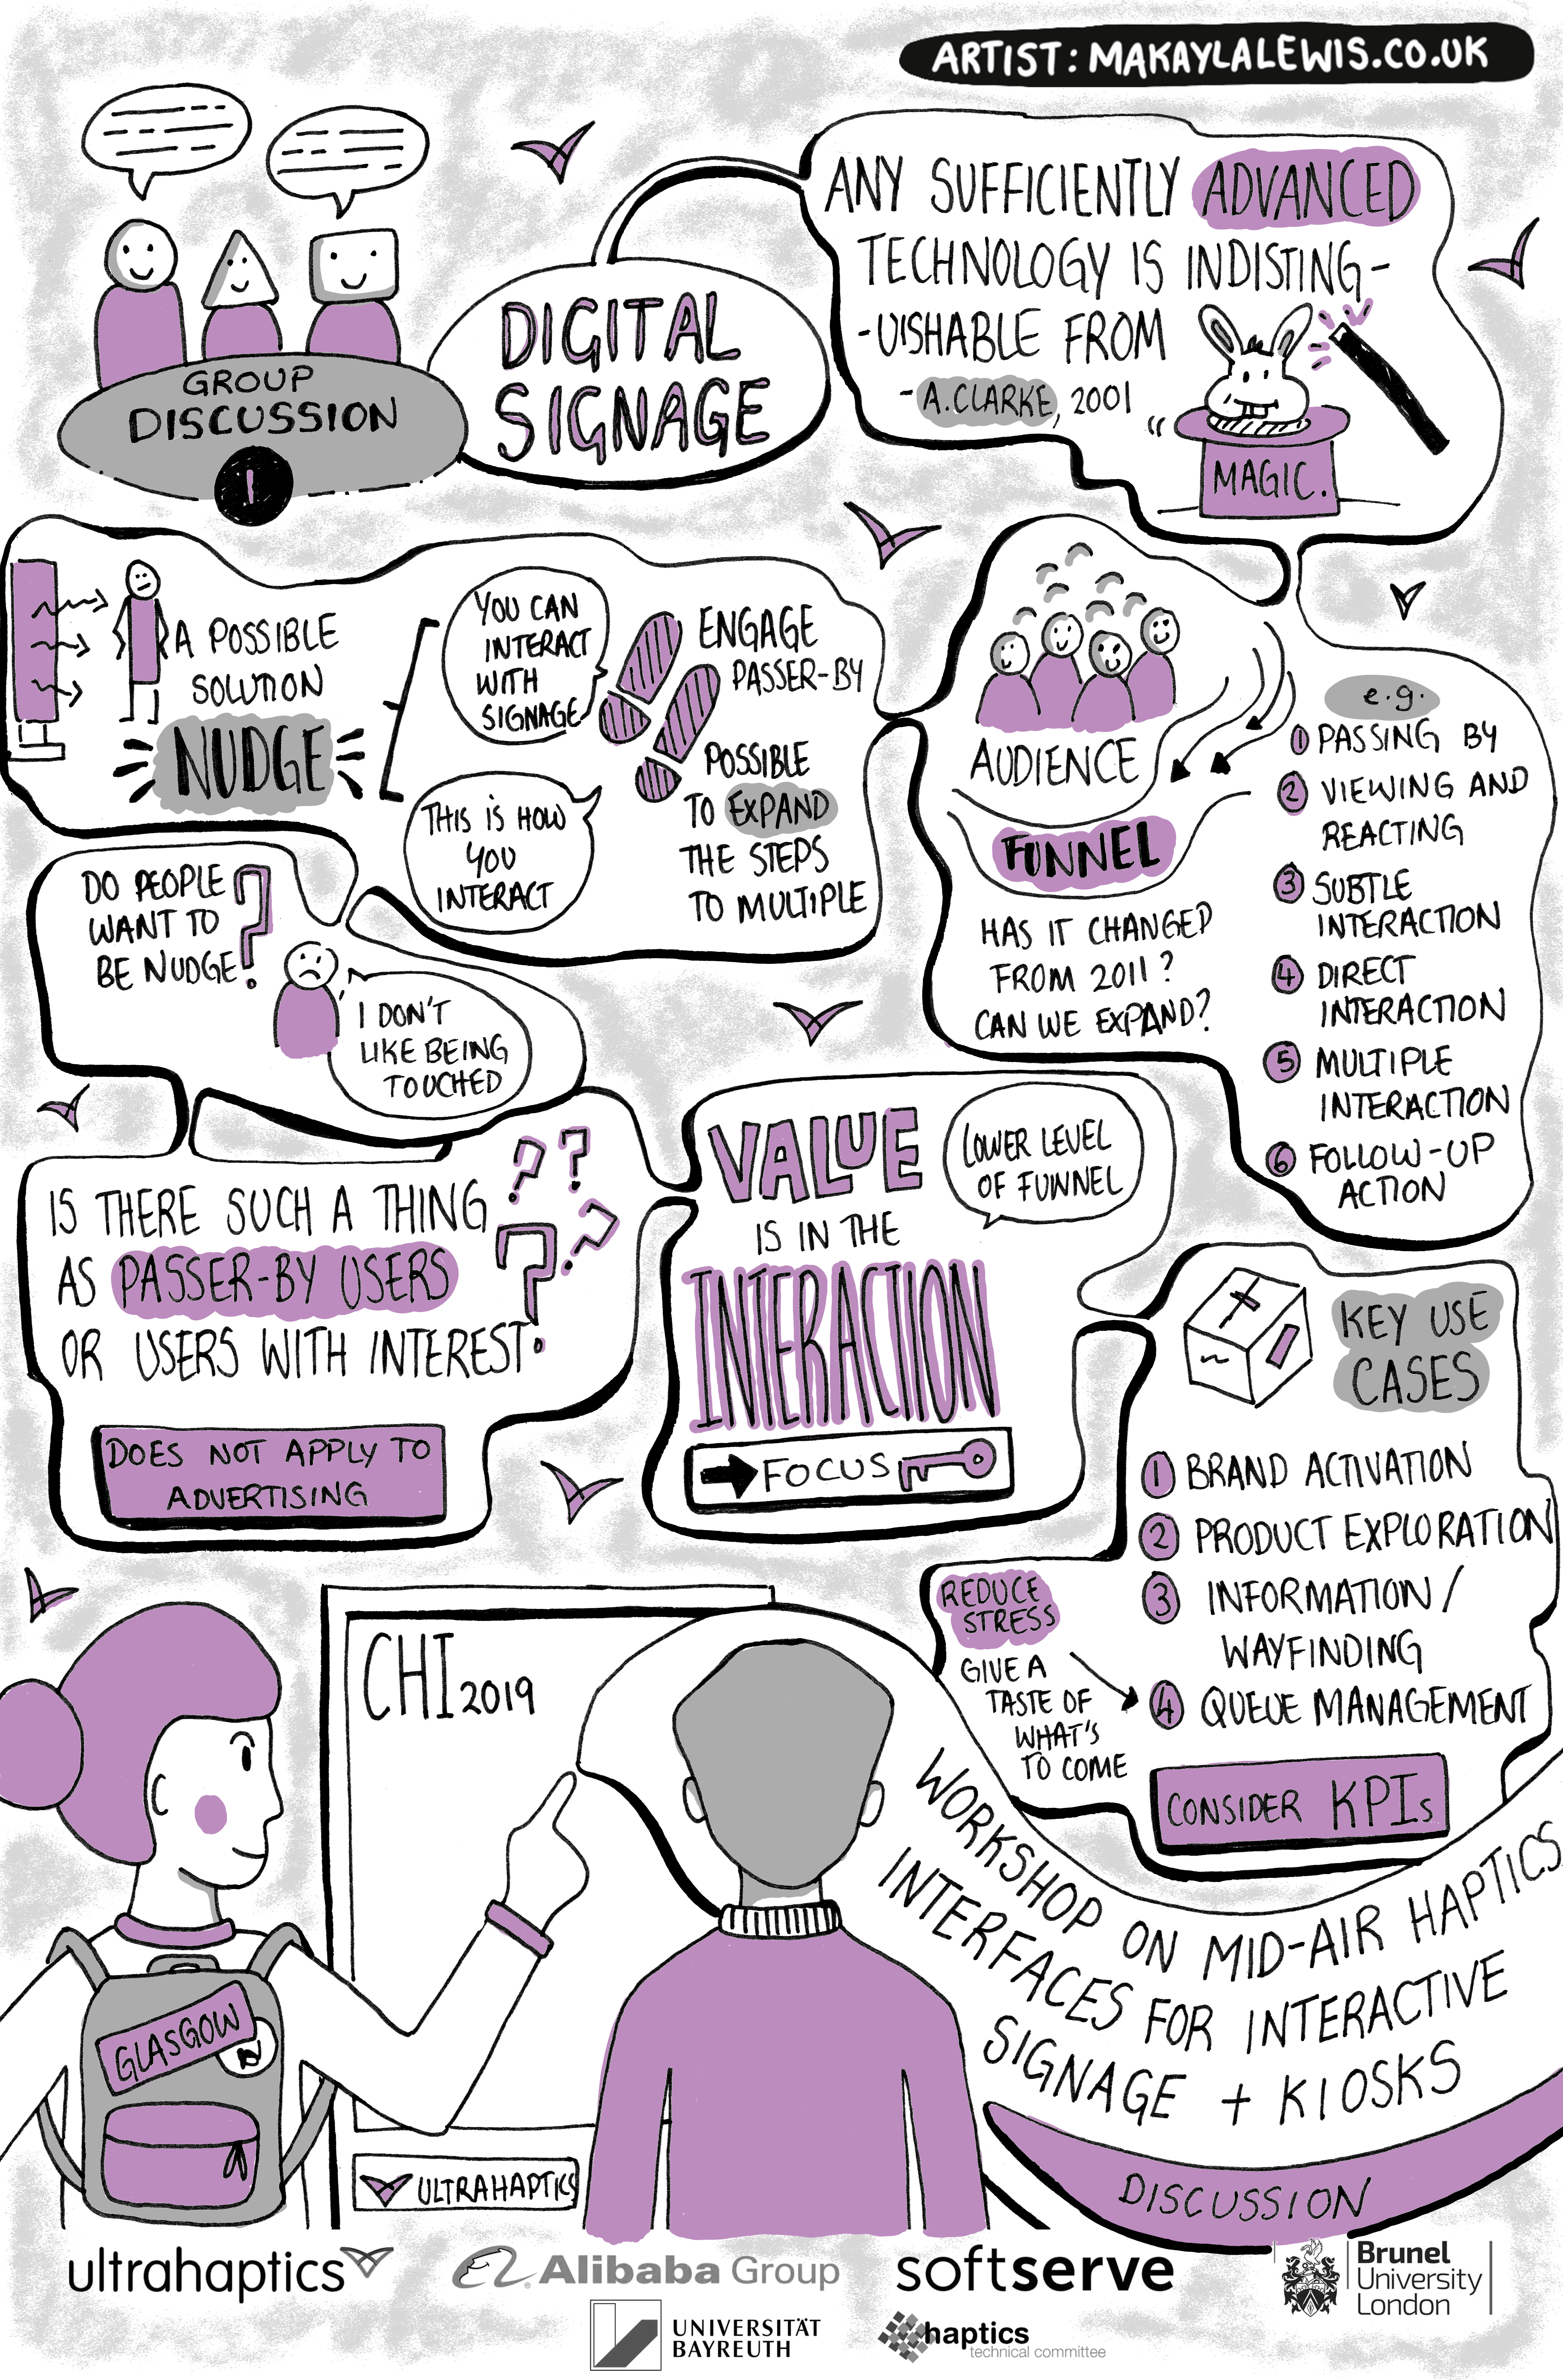 ARTIST: MAKAYLALEWIS.CO.UK
GROUP
DISCUSSION
1
DIGITAL
SIGNAGE
ANY SUFFICIENTLY ADVANCED
TECHNOLOGY IS INDISTING-
-UISHABLE FROM
- A.CLARKE, 2001
MAGIC.
A POSSIBLE
SOLUTION
NUDGE
YOU CAN
INTERACT
WITH
SIGNAGE
THIS IS HOW
YOU
INTERACT
ENGAGE
PASSER-BY
POSSIBLE
TO EXPAND
THE STEPS
TO MULTIPLE
AUDIENCE
FUNNEL
HAS IT CHANGED
FROM 2011?
CAN WE EXPAND?
e.g.
1 PASSING BY
2 VIEWING AND
REACTING
3 SUBTLE
INTERACTION
4 DIRECT
INTERACTION
5 MULTIPLE
INTERACTION
6 FOLLOW-UP
ACTION
DO PEOPLE
WANT TO
BE NUDGE?
I DON'T
LIKE BEING
TOUCHED
IS THERE SUCH A THING
AS PASSER-BY USERS
OR USERS WITH INTEREST
? ? ? ?
DOES NOT APPLY TO
ADVERTISING
VALUE
IS IN THE
INTERACTION
LOWER LEVEL
OF FUNNEL
FOCUS
KEY USE
CASES
1 BRAND ACTIVATION
2 PRODUCT EXPLORATION
3 INFORMATION/
WAYFINDING
4 QUEUE MANAGEMENT
REDUCE
STRESS
GIVE A
TASTE OF
WHAT'S
TO COME
CONSIDER KPIs
CHI 2019
GLASGOW
ULTRAHAPTICS
WORKSHOP ON MID-AIR HAPTICS
INTERFACES FOR INTERACTIVE
SIGNAGE + KIOSKS
DISCUSSION
ultrahaptics
Alibaba Group
softserve
Brunel
University
London
UNIVERSITÄT
BAYREUTH
haptics
technical committee